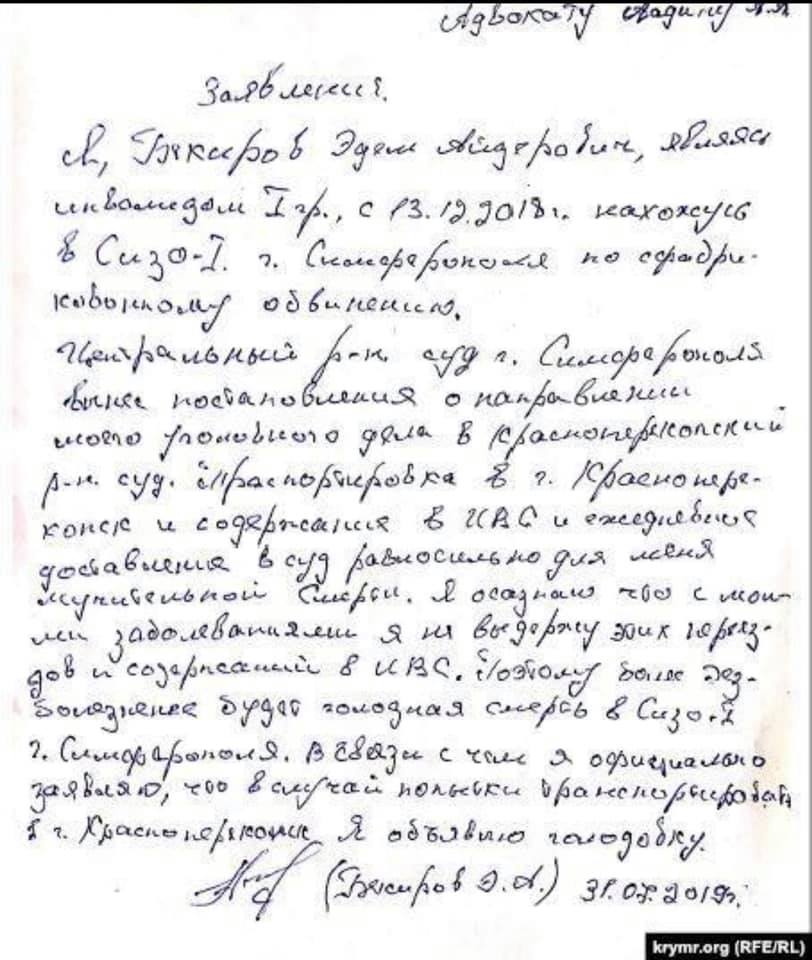 Адвокату Ладину А.А.
Заявления.
Я, Бекиров Эдем Айдерович, являясь
инвалидом I гр., с 13.12.2018г. нахожусь
в Сизо-I. г. Симферополя по сфабри-
кованному обвинению.
Центральный р-н. суд г. Симферополя
вынес постановления о направлении
моего уголовного дела в Красноперекопский
р-н. суд. Траспортировка в г. Краснопере-
копск и содержания в ИВС и ежедневные
доставления в суд равносильно для меня
мучительной смерти. Я осознаю что с мои-
ми заболеваниями я не выдержу этих переез-
дов и содержаний в ИВС. Поэтому более без-
болезненее будет голодная смерть в Сизо-I
г. Симферополя. В связи с чем я официально
заявляю, что в случай попытки транспортировать
в г. Красноперекопск Я объявлю голодовку.
(Бекиров Э.А.) 31.07.2019г.
krymr.org (RFE/RL)